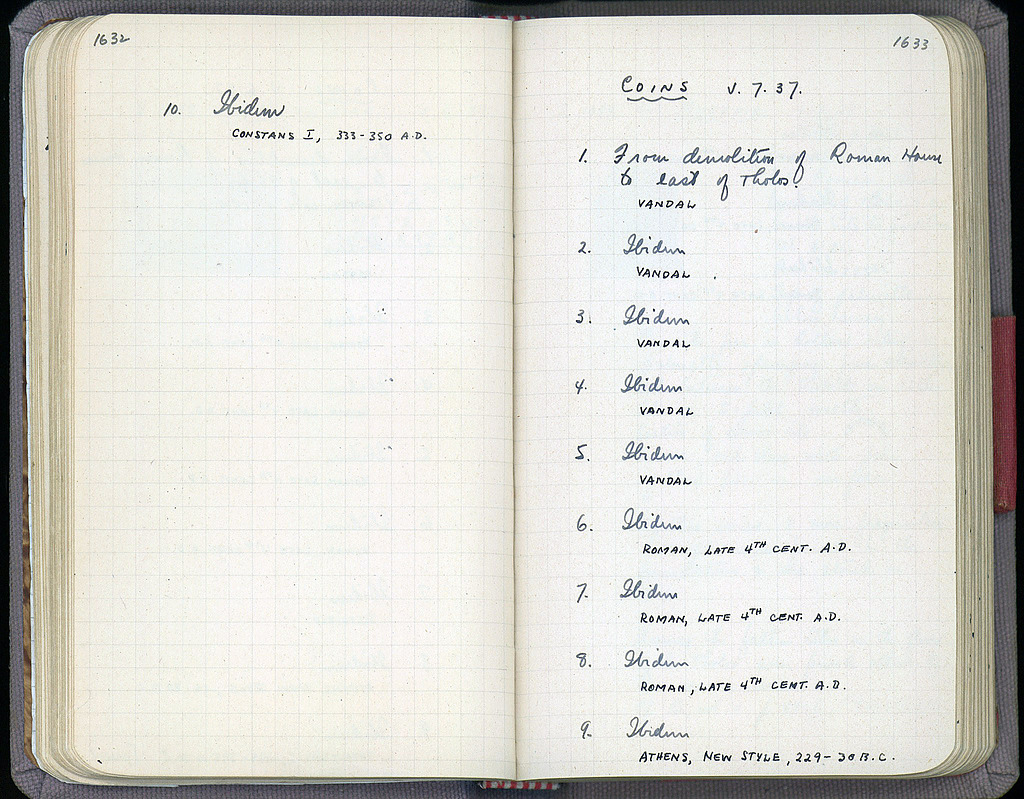 1632
10. Ibidem
CONSTANS I, 333-350 A.D.
1633
COINS V. 7. 37.
1. From demolition of Roman House
to east of Tholos.
VANDAL
2. Ibidem
VANDAL
3. Ibidem
VANDAL
4. Ibidem
VANDAL
5. Ibidem
VANDAL
6. Ibidem
ROMAN, LATE 4TH CENT. A.D.
7. Ibidem
ROMAN, LATE 4TH CENT. A.D.
8. Ibidem
ROMAN, LATE 4TH CENT. A.D.
9. Ibidem
ATHENS, NEW STYLE, 229-30 B.C.